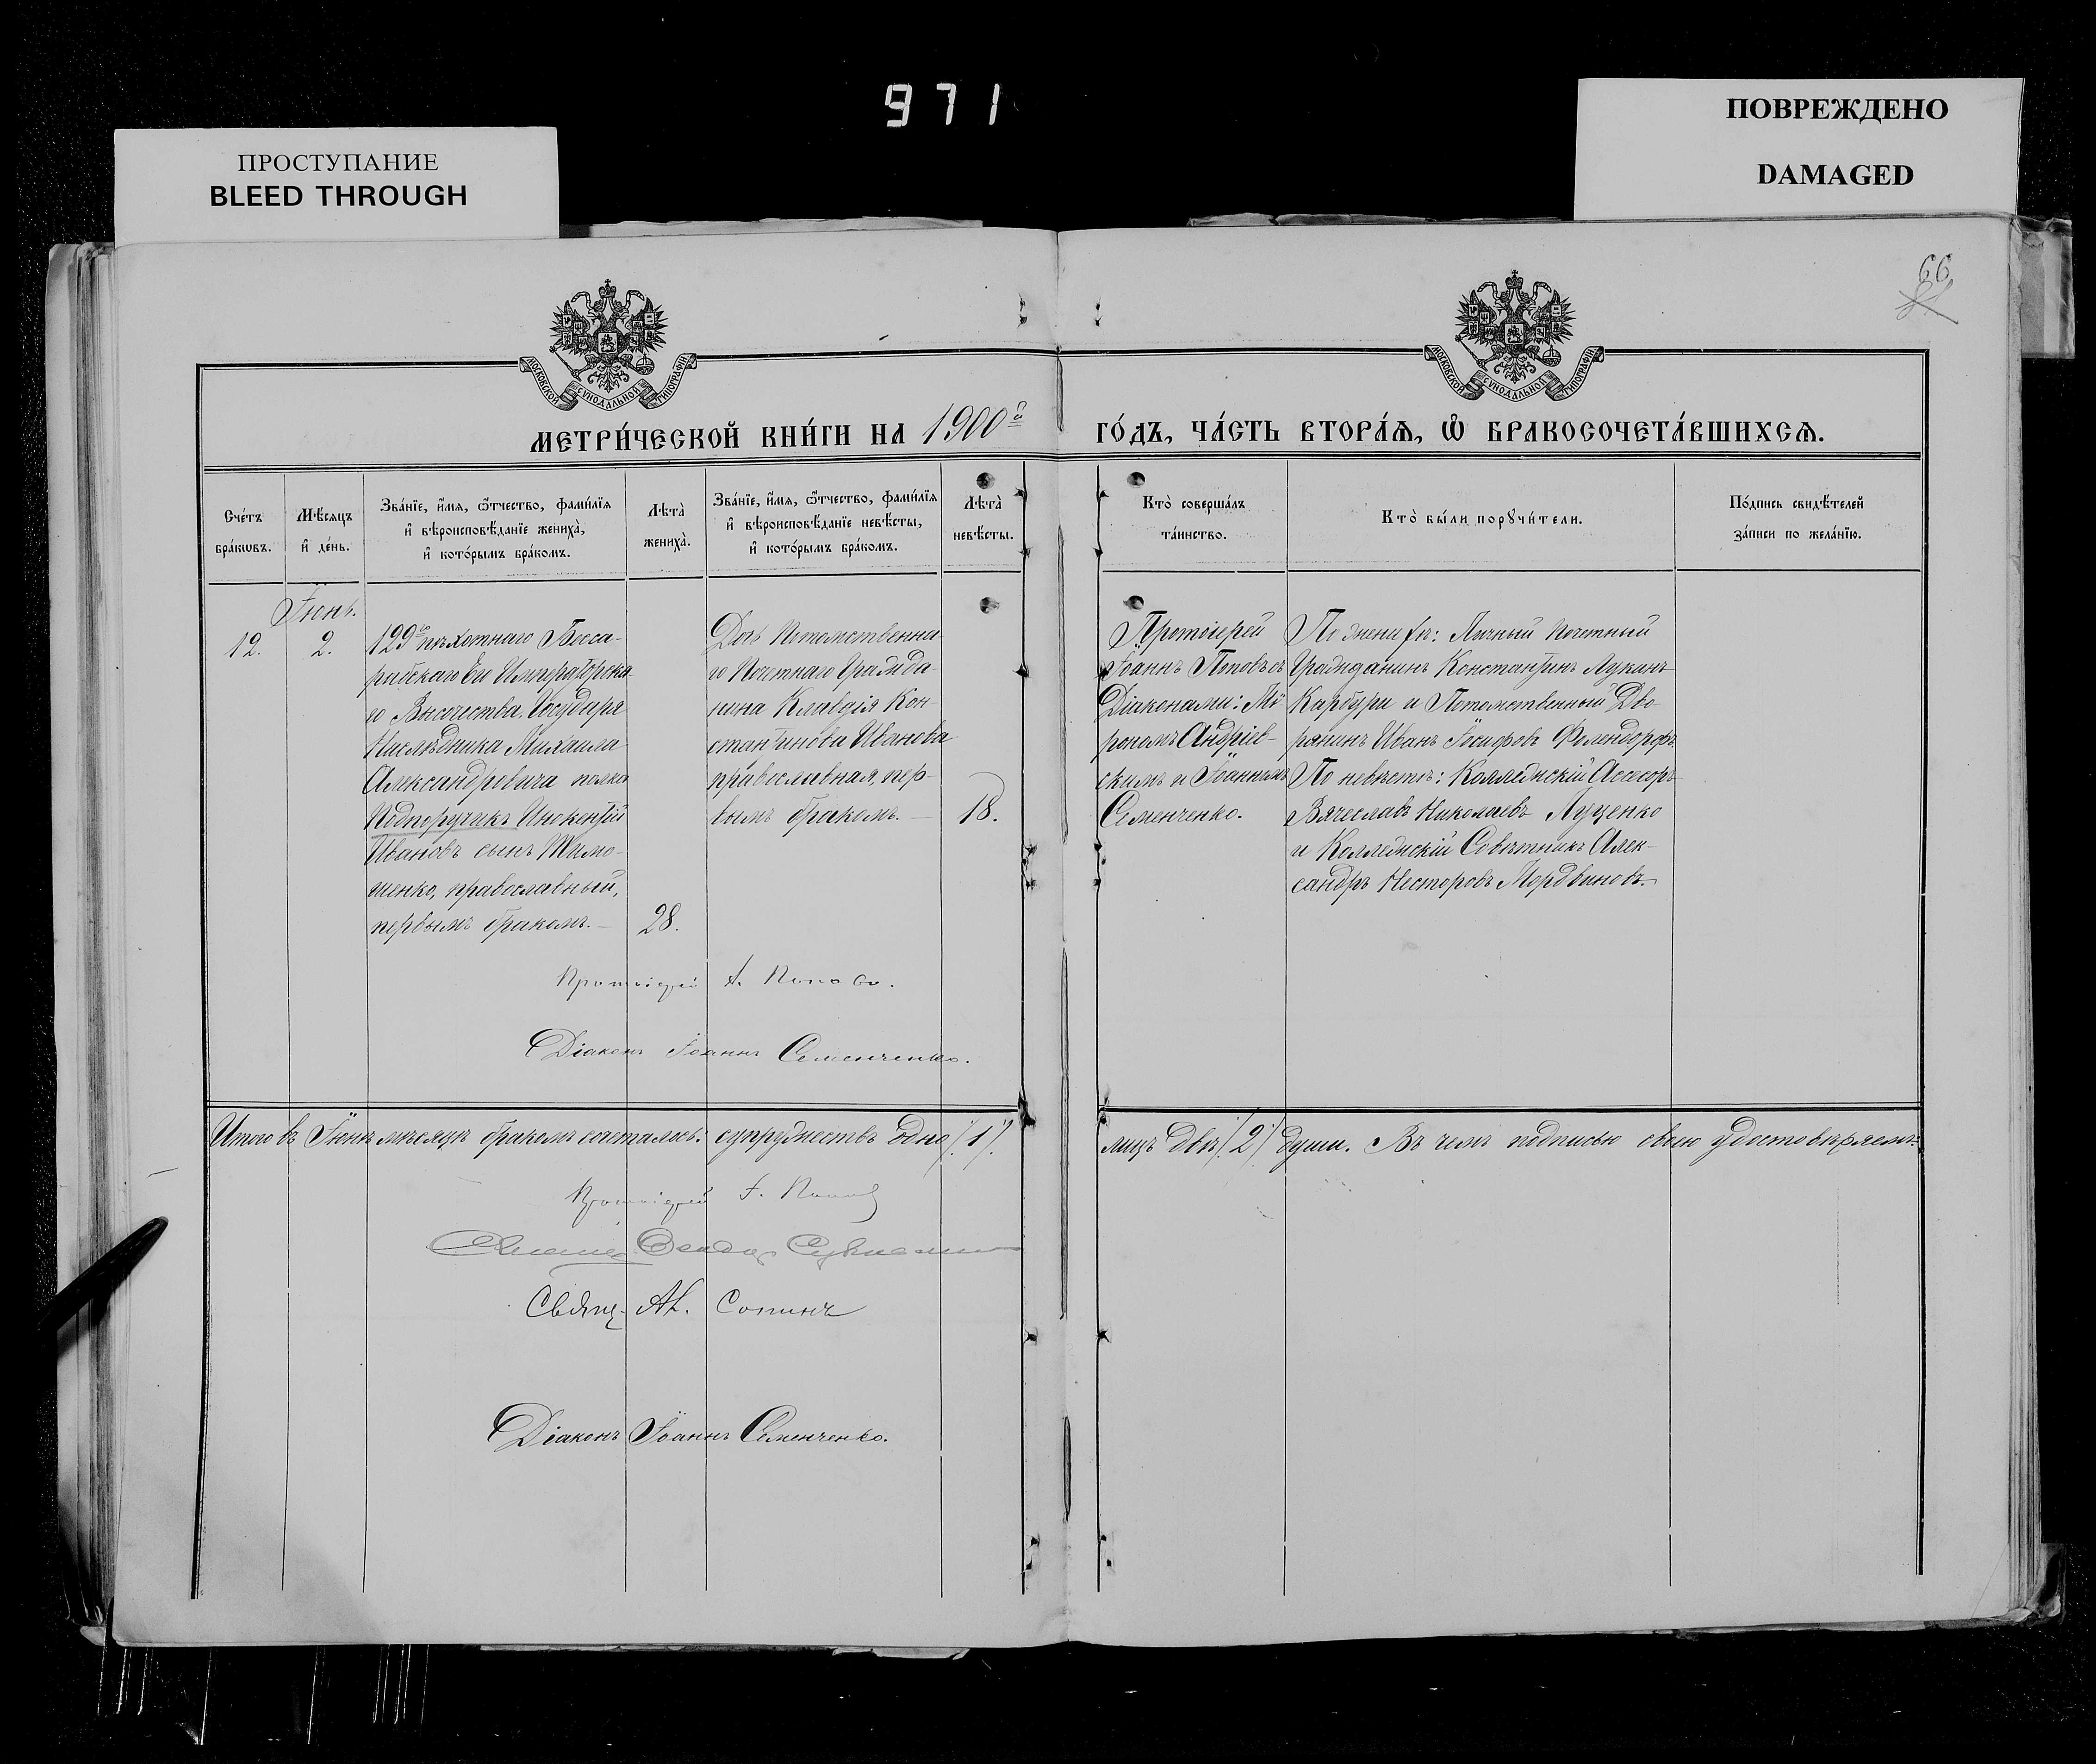 971
ПРОСТУПАНИЕ
BLEED THROUGH
ПОВРЕЖДЕНО
DAMAGED
66
МОСКОВСКОЙ СѴНОДАЛЬНОЙ ТИПОГРАФІИ
МОСКОВСКОЙ СѴНОДАЛЬНОЙ ТИПОГРАФІИ
МЕТРИ́ЧЕСКОЙ КНИ́ГИ НА 1900й
ГО́ДЪ, ЧА́СТЬ ВТОРА́Ѧ, Ѽ БРАКОСОЧЕТА́ВШИХСѦ.
Сче́тъ
бра́кѡвъ.
Мѣ́сяцъ
и҆ де́нь.
Зва́нїе, и҆́мѧ, ѻ҆́тчество, фами́лїѧ
и҆ вѣроисповѣ́данїе жениха̀,
и҆ кото́рымъ бра́комъ.
Лѣта̀
жениха̀.
Зва́нїе, и҆́мѧ, ѻ҆́тчество, фами́лїѧ
и҆ вѣроисповѣ́данїе невѣ́сты,
и҆ кото́рымъ бра́комъ.
Лѣта̀
невѣ́сты.
Кто̀ соверша́лъ
та́инство.
Кто̀ бы́ли порꙋчи́тели.
По́дпись свидѣ́телей
за́писи по жела́нїю.
Іюнь.
12.
2.
129го пѣхотнаго Бесса-
рабскаго Его Императорска-
го Высочества Государя
Наслѣдника Михаила
Александровича полка
Подпоручикъ Инокентій
Ивановъ сынъ Тимо-
шенко, православный,
первымъ бракомъ.
28.
Дочь Потомственна-
го Почетнаго Гражда-
нина Клавдія Кон-
стантинова Иванова
православная, пер-
вымъ бракомъ. –
18.
Протоіерей
Іоаннъ Поповъ съ
Діаконами: Мі-
рономъ Андріев-
скимъ и Іоанномъ
Семенченко.
По женихѣ: Личный Почетный
Гражданинъ Константинъ Лукинъ
Карбури и Потомственный Дво-
рянинъ Иванъ Іосифовъ Фолендорфъ
По невѣстѣ: Коллежскій Ассесоръ
Вячеславъ Николаевъ Луценко
и Коллежскій Совѣтникъ Алек-
сандръ Несторовъ Мордвиновъ.
Протоіерей І. Поповъ.
Діаконъ Іоаннъ Семенченко.
Итого въ Іюнѣ мѣсяцѣ бракомъ состалось: супружествъ одно /1/.
лицъ двѣ /2/ души. Въ чемъ подписью своею удостовѣряемъ:
Протоіерей І. Поповъ
Свящ. Ал. Сопинъ
Діаконъ Іоаннъ Семенченко.